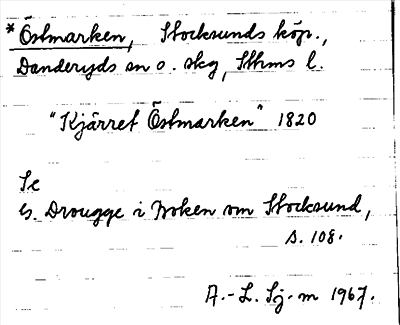 * Östmarken, Stocksunds köp.,
Danderyds sn o. skg, Sthms l.
"Kjärret Östmarken" 1820
Se
G. Drougge i Boken om Stocksund,
s. 108.
A.-L. Sj-m 1967.